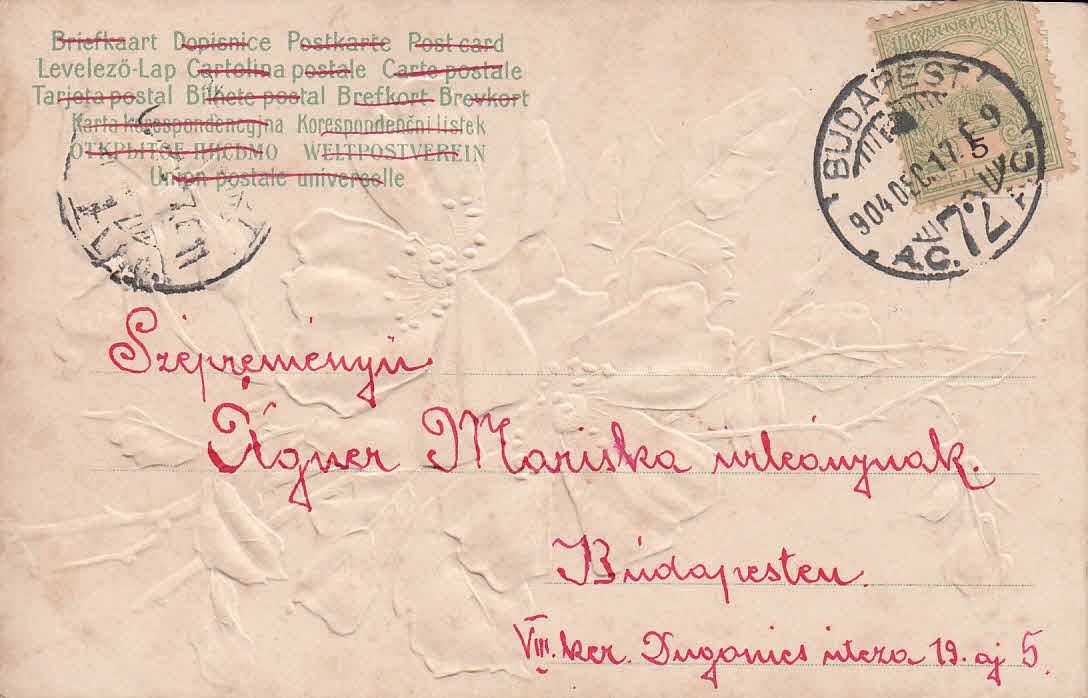 Briefkaart Dopisnice Postkarte Post card
Levelező-Lap Cartolina postale Carte postale
Tarjeta postal Bilhete postal Brefkort Brevkort
Karta korespondencyjna Korespondenčni listek
ОТКРЫТОЕ ПИСЬМО WELTPOSTVEREIN
Union postale universelle
MAGYAR KIR. POSTA
BUDAPEST
904 DEC. 17.
72
Szépreményü
Ágner Mariska úrleánynak.
Búdapesten.
VIII. ker. Dugonics utcza 19. aj 5.